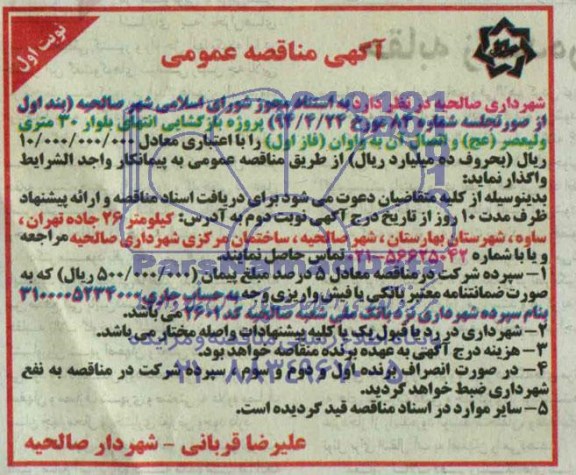 نوبت اول
آگهی مناقصه عمومی
شهرداری صالحیه در نظر دارد به استناد مجوز شورای اسلامی شهر صالحیه (بند اول
از صورتجلسه شماره ۸۳ مورخ ۹۴/۴/۲۴) پروژه بازگشایی انتهای بلوار ۳۰ متری
ولیعصر (عج) و اتصال آن به واوان (فاز اول) را با اعتباری معادل ۱۰/۰۰۰/۰۰۰/۰۰۰
ریال (بحروف ده میلیارد ریال) از طریق مناقصه عمومی به پیمانکار واجد الشرایط
واگذار نماید:
بدینوسیله از کلیه متقاضیان دعوت می شود برای دریافت اسناد مناقصه و ارائه پیشنهاد
ظرف مدت ۱۰ روز از تاریخ درج آگهی نوبت دوم به آدرس: کیلومتر ۲۶ جاده تهران ،
ساوه ، شهرستان بهارستان ، شهر صالحیه ، ساختمان مرکزی شهرداری صالحیه مراجعه
و یا با شماره ۵۶۶۲۵۰۴۲-۰۲۱ تماس حاصل نمایند.
۱- سپرده شرکت در مناقصه معادل ۵ درصد مبلغ پیمان (۵۰۰/۰۰۰/۰۰۰ ریال) که به
صورت ضمانتنامه معتبر بانکی یا فیش واریزی وجه به حساب جاری ۳۱۰۰۰۰۵۲۳۴۰۰۰
بنام سپرده شهرداری نزد بانک ملی شعبه صالحیه کد ۲۶۰۲ می باشد.
۲- شهرداری در رد یا قبول یک یا کلیه پیشنهادات واصله مختار می باشد.
۳- هزینه درج آگهی به عهده برنده مناقصه خواهد بود.
۴- در صورت انصراف برنده اول و دوم و سوم ، سپرده شرکت در مناقصه به نفع
شهرداری ضبط خواهد گردید.
۵- سایر موارد در اسناد مناقصه قید گردیده است.
علیرضا قربانی - شهردار صالحیه